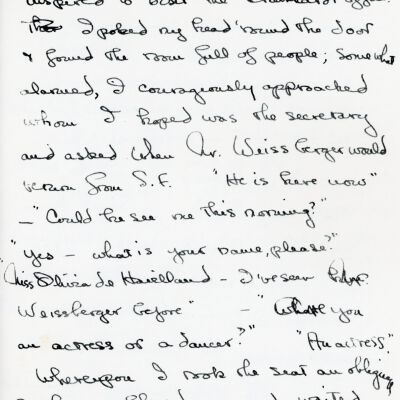 to the office
I poked my head 'round the door
& found the room full of people; somewhat
alarmed, I courageously approached
whom I hoped was the secretary
and asked when Mr. Weissberger would
return from S.F. "He is here now"
— "Could he see me this morning?"
"Yes — what is your name, please?"
"Miss Olivia de Havilland — I've seen Mr.
Weissberger before" — "Are you
an actress or a dancer?" "An actress".
Whereupon I took the seat an obliging
waited